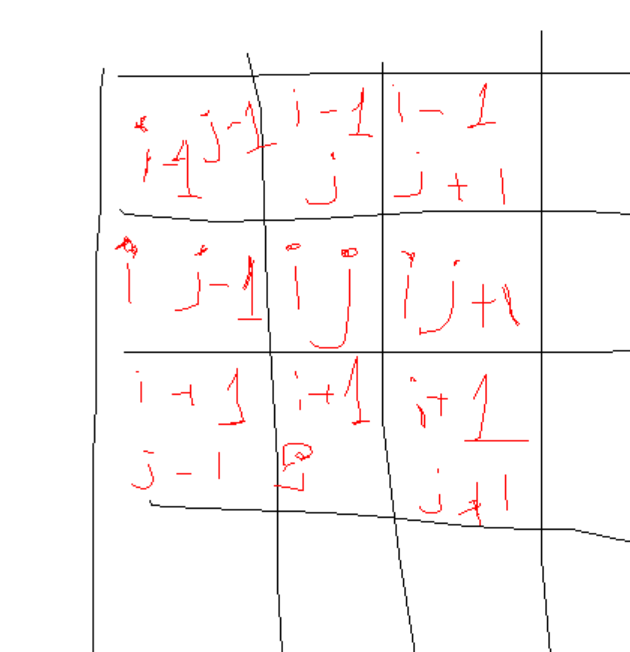 i-1 j-1 i-1 i-1
j j+1
i j-1 i j i j+1
i+1 i+1 i+1
j-1 j+1